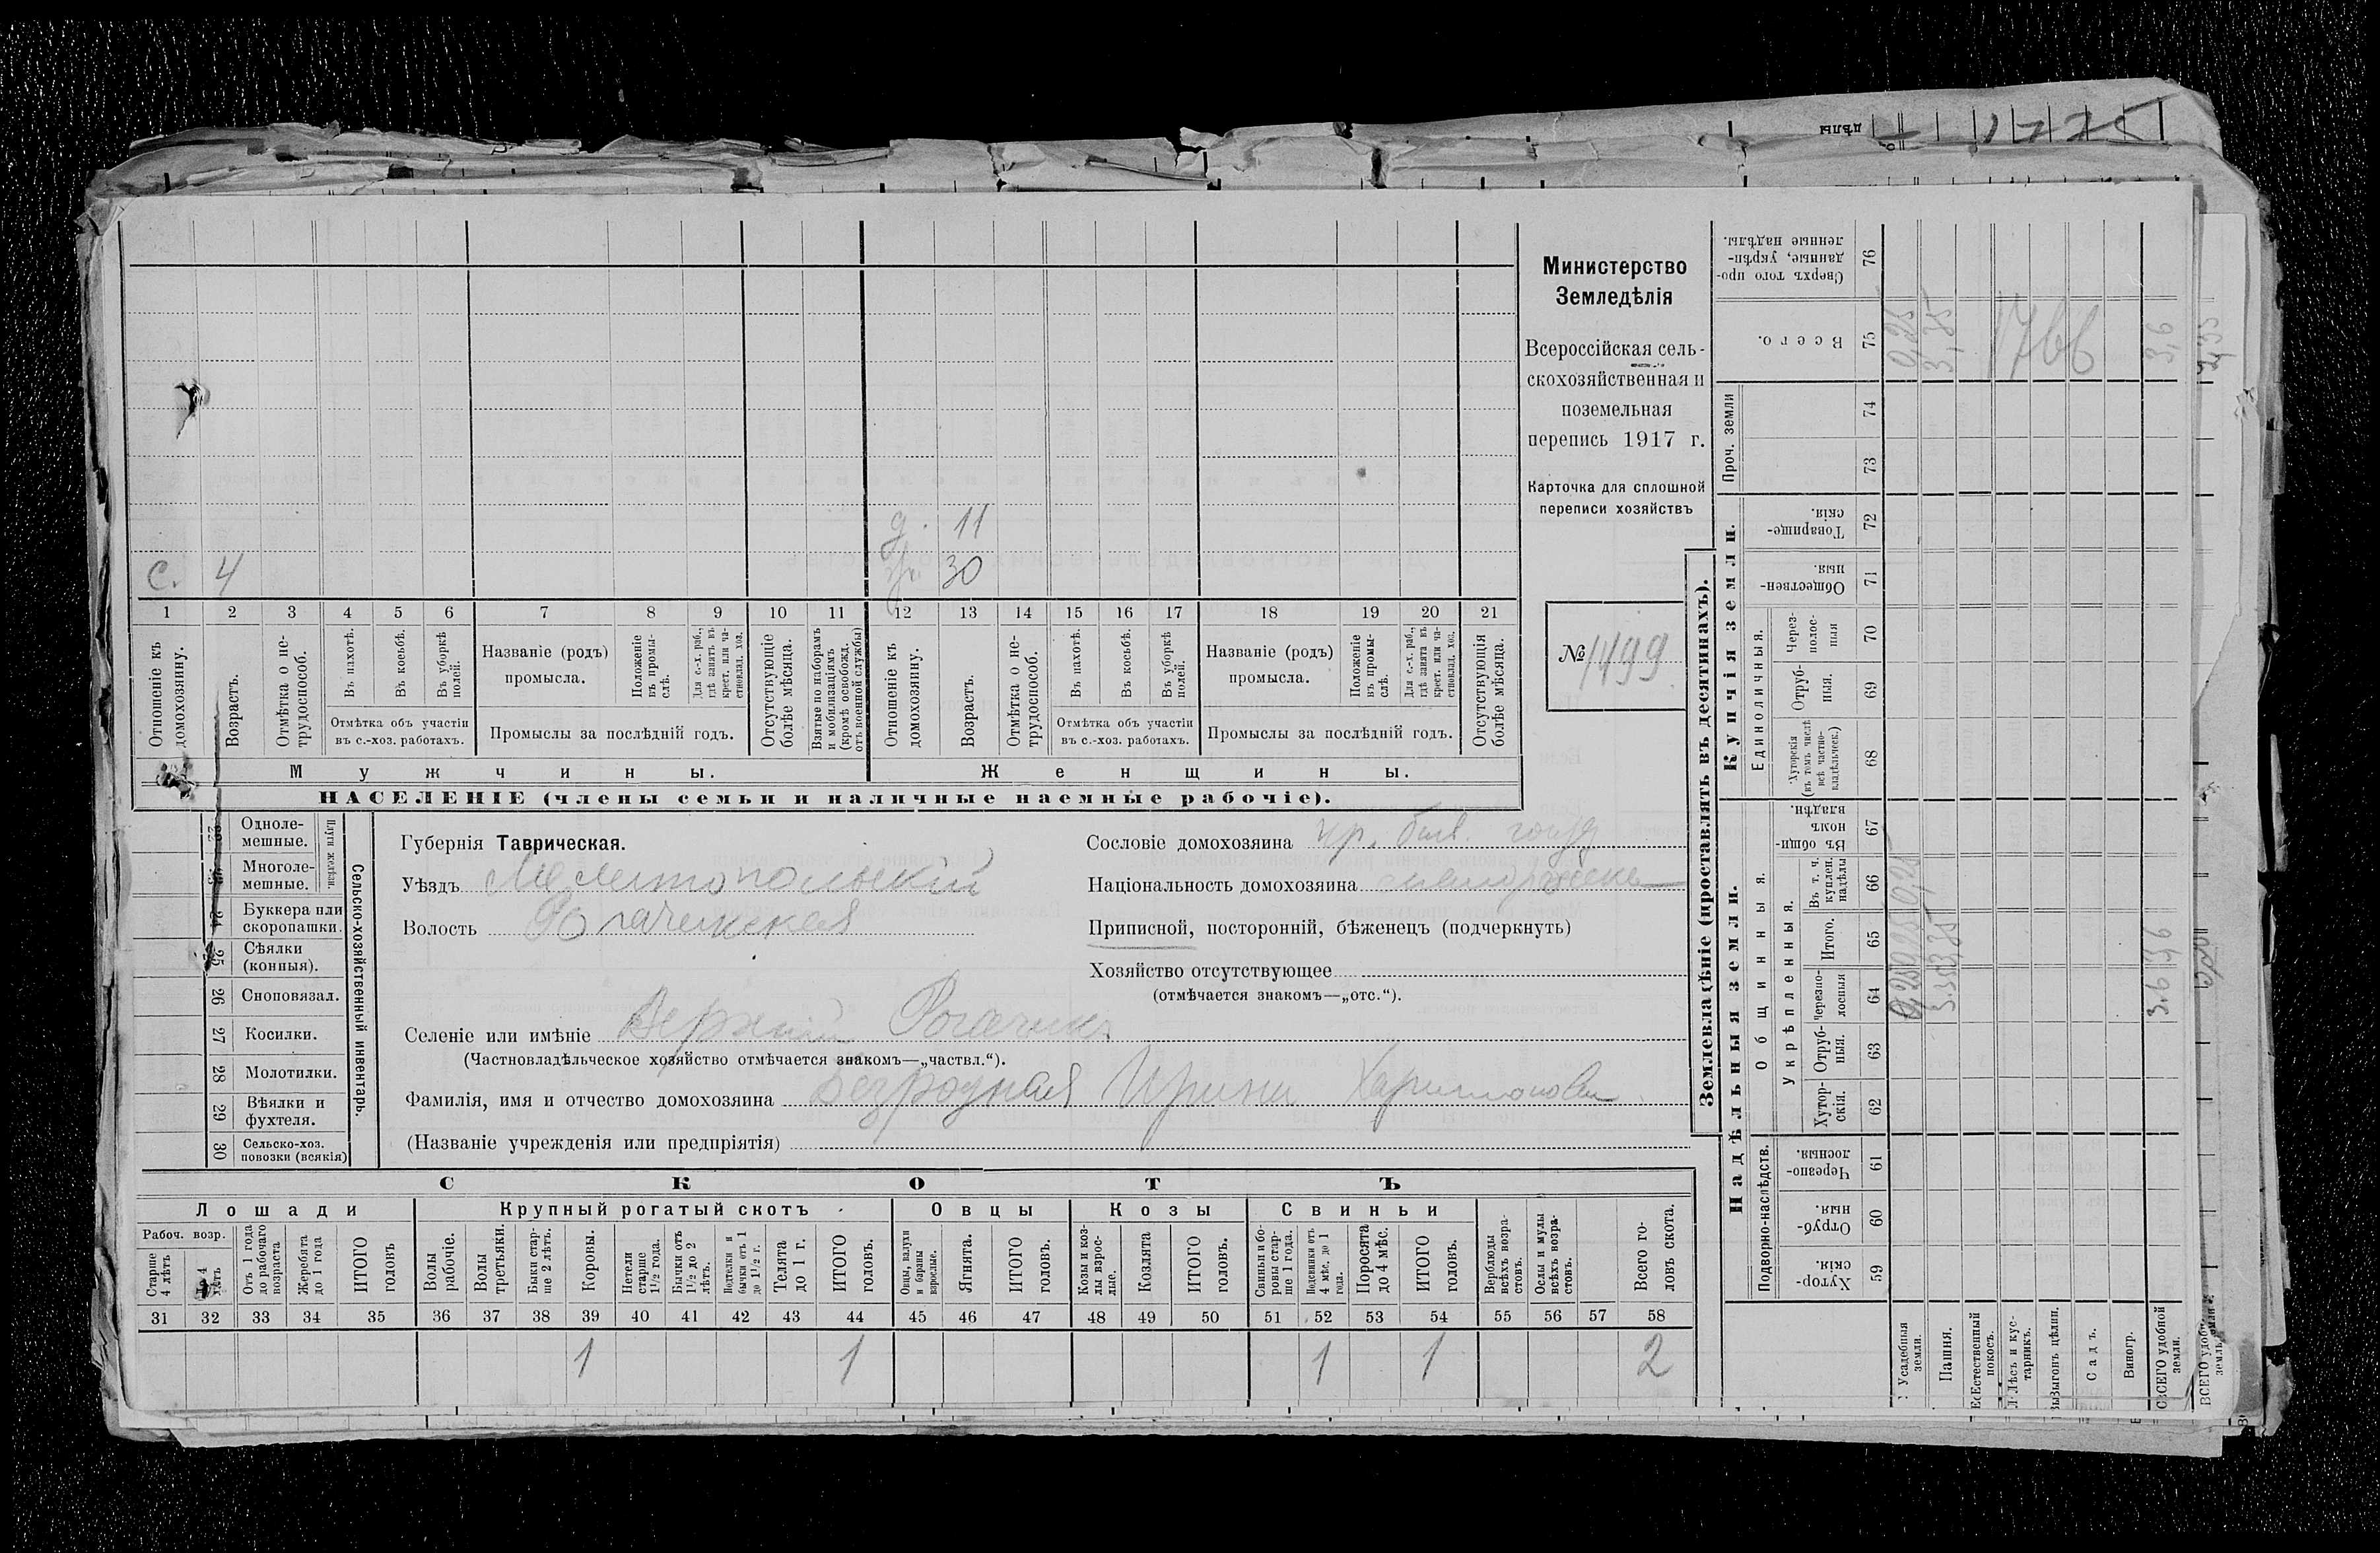 Министерство
Земледѣлія
Всероссійская сель-
скохозяйственная и
поземельная
перепись 1917 г.
Карточка для сплошной
переписи хозяйствъ
№ 1499
д. 11
30
с. 4
1 2 3 4 5 6 7 8 9 10 11 12 13 14 15 16 17 18 19 20 21
Отношеніе къ домохозяину.
Возрастъ.
Отмѣтка о не-трудоспособ.
Въ пахотѣ.
Въ косьбѣ.
Въ уборкѣ полей.
Отмѣтка объ участіи
въ с.-хоз. работахъ.
Названіе (родъ)
промысла.
Положеніе въ промы-слѣ.
Для с.-х. раб., гдѣ занятъ въ крест. или ча-стновлад. хоз.
Промыслы за послѣдній годъ.
Отсутствующіе болѣе мѣсяца.
Взятые по наборамъ и мобилизаціямъ (кромѣ освобожд. отъ военной службы)
Отношеніе къ домохозяину.
Возрастъ.
Отмѣтка о не-трудоспособ.
Въ пахотѣ.
Въ косьбѣ.
Въ уборкѣ полей.
Отмѣтка объ участіи
въ с.-хоз. работахъ.
Названіе (родъ)
промысла.
Положеніе въ промы-слѣ.
Для с.-х. раб., гдѣ занята въ крест. или ча-стновлад. хоз.
Промыслы за послѣдній годъ.
Отсутствующія болѣе мѣсяца.
Мужчины. Женщины.
НАСЕЛЕНІЕ (члены семьи и наличные наемные рабочіе).
Сельско-хозяйственный инвентарь.
Плуги желѣзн.
22 Одноле-мешные.
23 Многоле-мешные.
24 Буккера или скоропашки.
25 Сѣялки (конныя).
26 Сноповязал.
27 Косилки.
28 Молотилки.
29 Вѣялки и фухтеля.
30 Сельско-хоз. повозки (всякія)
Губернія Таврическая.
Уѣздъ Мелитопольскій
Волость Рогачикская
Сословіе домохозяина кр. быв. госуд
Національность домохозяина малоросска
Приписной, посторонній, бѣженецъ (подчеркнуть)
Хозяйство отсутствующее
(отмѣчается знакомъ—„отс.“).
Селеніе или имѣніе Верхній Рогачикъ
(Частновладѣльческое хозяйство отмѣчается знакомъ—„частвл.“).
Фамилія, имя и отчество домохозяина Безродная Ирина Харитонова
(Названіе учрежденія или предпріятія)
СКОТЪ
Лошади Крупный рогатый скотъ Овцы Козы Свиньи
Рабоч. возр.
Старше 4 лѣтъ
До 4 лѣтъ
Отъ 1 года до рабочаго возраста
Жеребята до 1 года
ИТОГО головъ
Волы рабочіе.
Волы третьяки.
Быки стар-ше 2 лѣтъ.
Коровы.
Нетели старше 1½ года.
Бычки отъ 1½ до 2 лѣтъ.
Подтелки и бычки отъ 1 до 1½ г.
Телята до 1 г.
ИТОГО головъ.
Овцы, валухи и бараны взрослые.
Ягнята.
ИТОГО головъ.
Козы и коз-лы взрос-лые.
Козлята
ИТОГО головъ.
Свиньи и бо-ровы стар-ше 1 года.
Подсвинки отъ 4 мѣс. до 1 года.
Поросята до 4 мѣс.
ИТОГО головъ.
Верблюды всѣхъ возра-стовъ.
Ослы и мулы всѣхъ возра-стовъ.
Всего го-ловъ скота.
31 32 33 34 35 36 37 38 39 40 41 42 43 44 45 46 47 48 49 50 51 52 53 54 55 56 57 58
1 1 1 1 2
Землевладѣніе (проставлять въ десятинахъ).
Сверхъ того про-данные, укрѣп-ленные надѣлы. 76
Всего. 75
Проч. земли 74 73
Купчія земли.
Товарище-скія. 72
Обществен-ныя. 71
Единоличныя.
Через-полос-ныя 70
Отруб-ныя. 69
Хуторскія (въ томъ числѣ всѣ частно-владѣльческ.) 68
Надѣльныя земли.
Общинныя.
Въ общи-номъ владѣн. 67
Укрѣпленныя.
Въ т. ч. куплен. надѣлы 66
Итого. 65
Черезпо-лосныя 64
Отруб-ныя. 63
Хутор-скія. 62
Подворно-наслѣдств.
Черезпо-лосныя. 61
Отруб-ныя. 60
Хутор-скія. 59
Усадебныя земли.
Пашня.
Естественный покосъ.
Лѣсъ и кус-тарникъ.
Выгонъ цѣлин.
Садъ.
Виногр.
ВСЕГО удобной земли.
0,25 0,25 0,25 0,25
3,35 3,35 3,35
1766
3,6 3,6 3,6